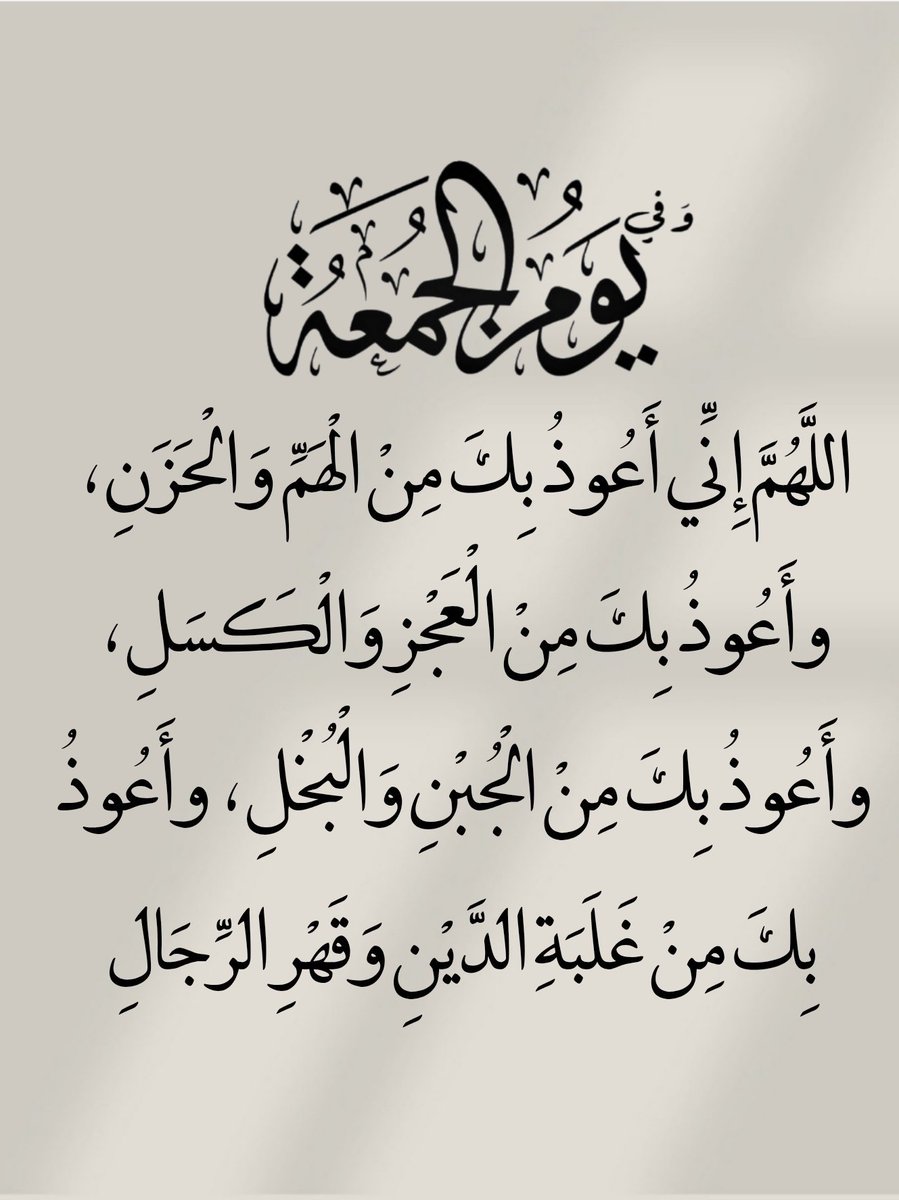 وَ في
يَومُ الجُمعَة
اللَّهُمَّ إِنِّي أَعُوذُ بِكَ مِنْ الْهَمِّ وَالْحَزَنِ،
وأَعُوذُ بِكَ مِنْ الْعَجْزِ وَالْكَسَلِ،
وأَعُوذُ بِكَ مِنْ الْجُبْنِ وَالْبُخْلِ، وأَعُوذُ
بِكَ مِنْ غَلَبَةِ الدَّيْنِ وَقَهْرِ الرِّجَالِ